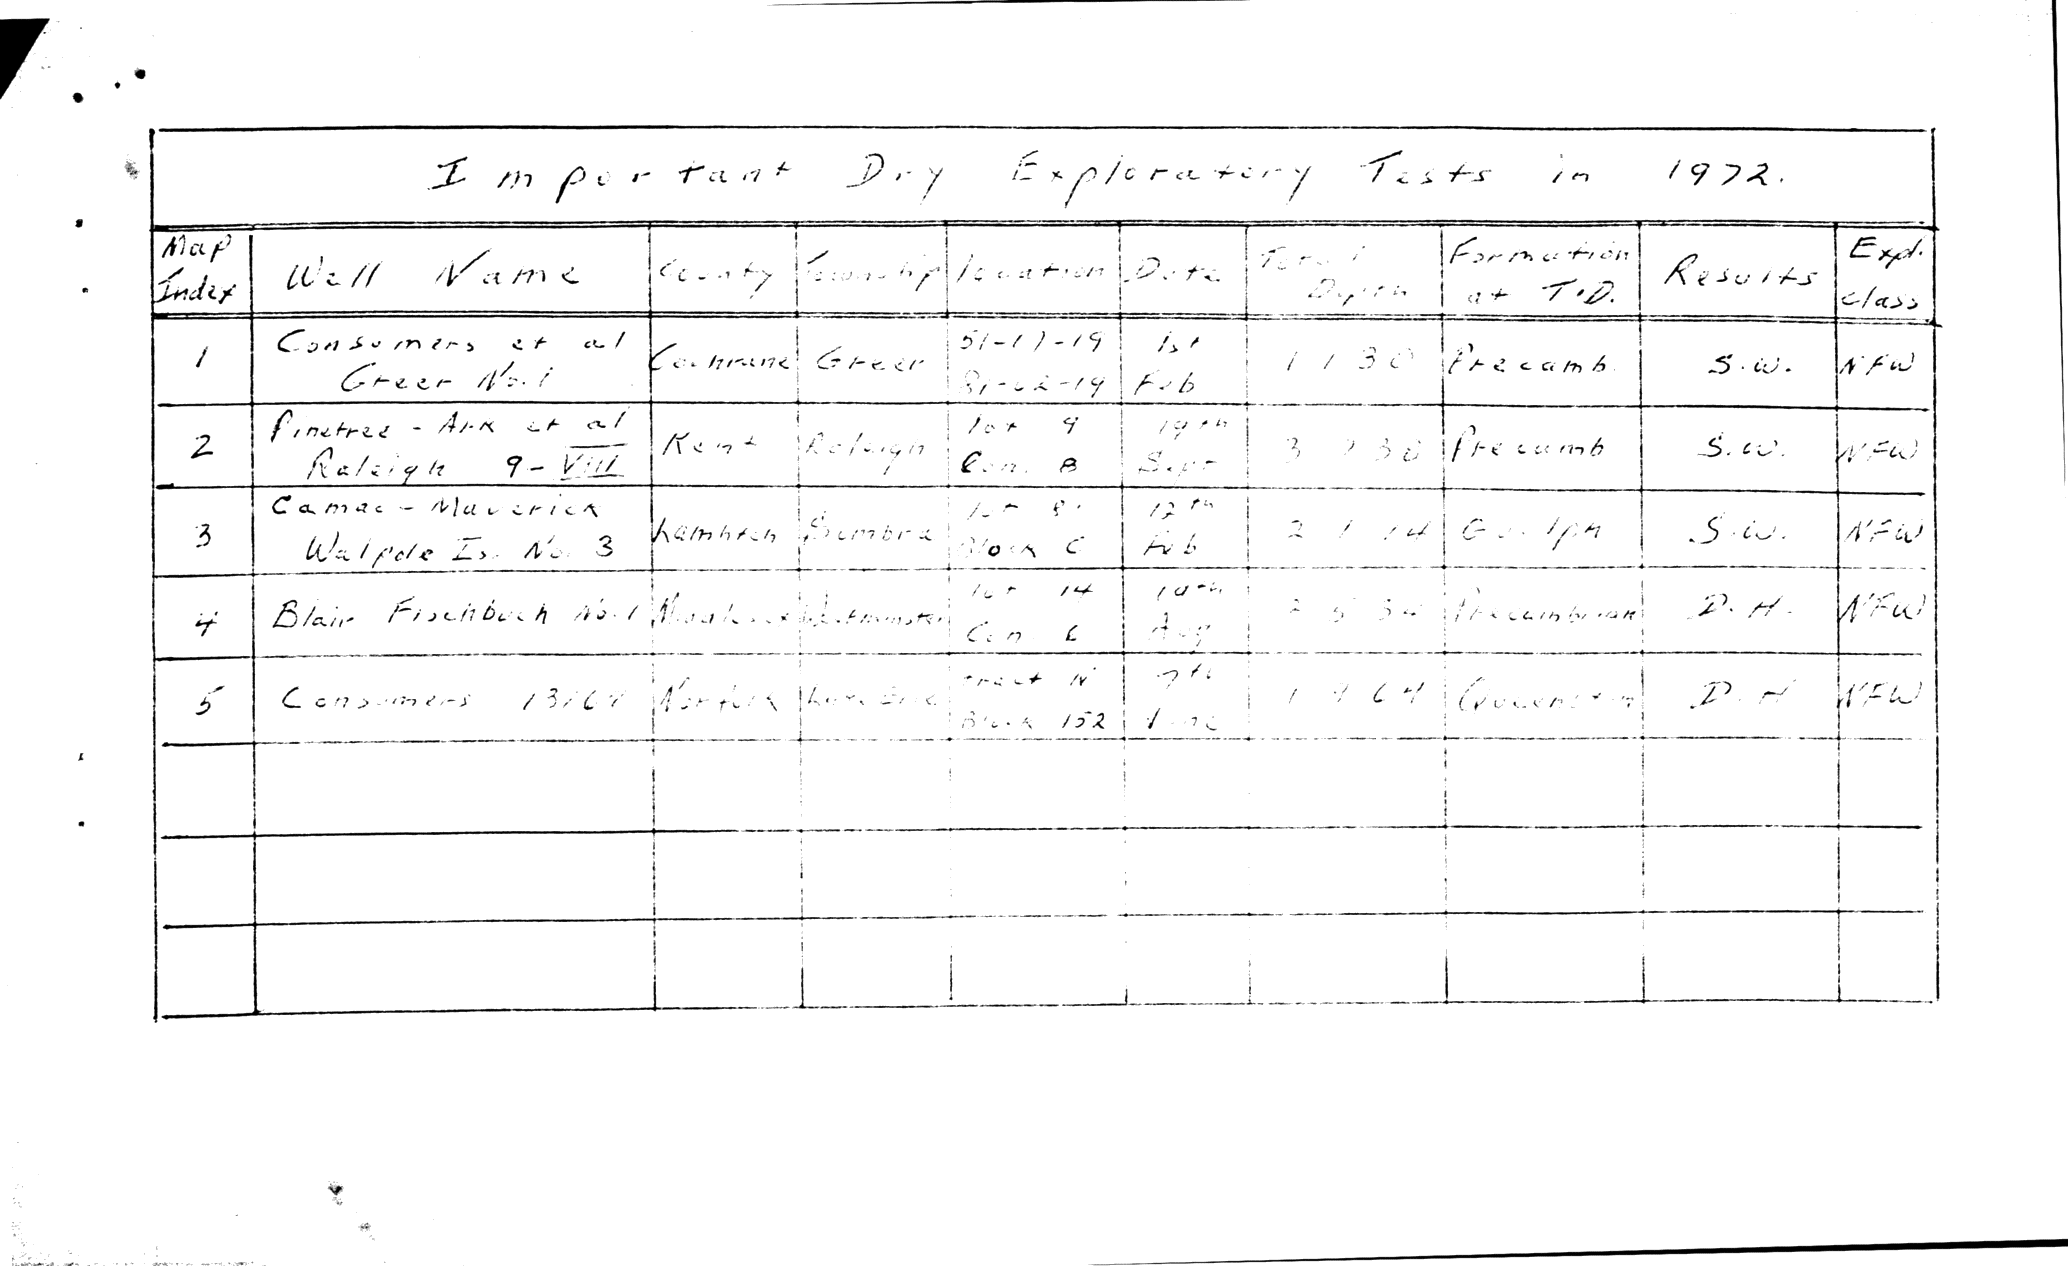 Important Dry Exploratory Tests in 1972.
Map Index Well Name County Township location Date Total Depth Formation at T.D. Results Expl. class
1 Consumers et al Greer No. 1 Cochrane Greer 1st Feb 1130 Precamb. S.W. NFW
2 Pinetree - Ark et al Raleigh 9 - VIII Kent Raleigh lot 9 Con. 8 19th Sept Precamb S.W. NFW
3 Camac - Maverick Walpole Is. No. 3 Lambton Sombra Block C 12th Feb Guelph S.W. NFW
4 Blair Fischbach No. 1 Middlesex Westminster lot 14 Con Aug Precambrian D.H. NFW
5 Consumers Norfolk Lake Erie tract N Block 152 7th June Queenston D.H NFW